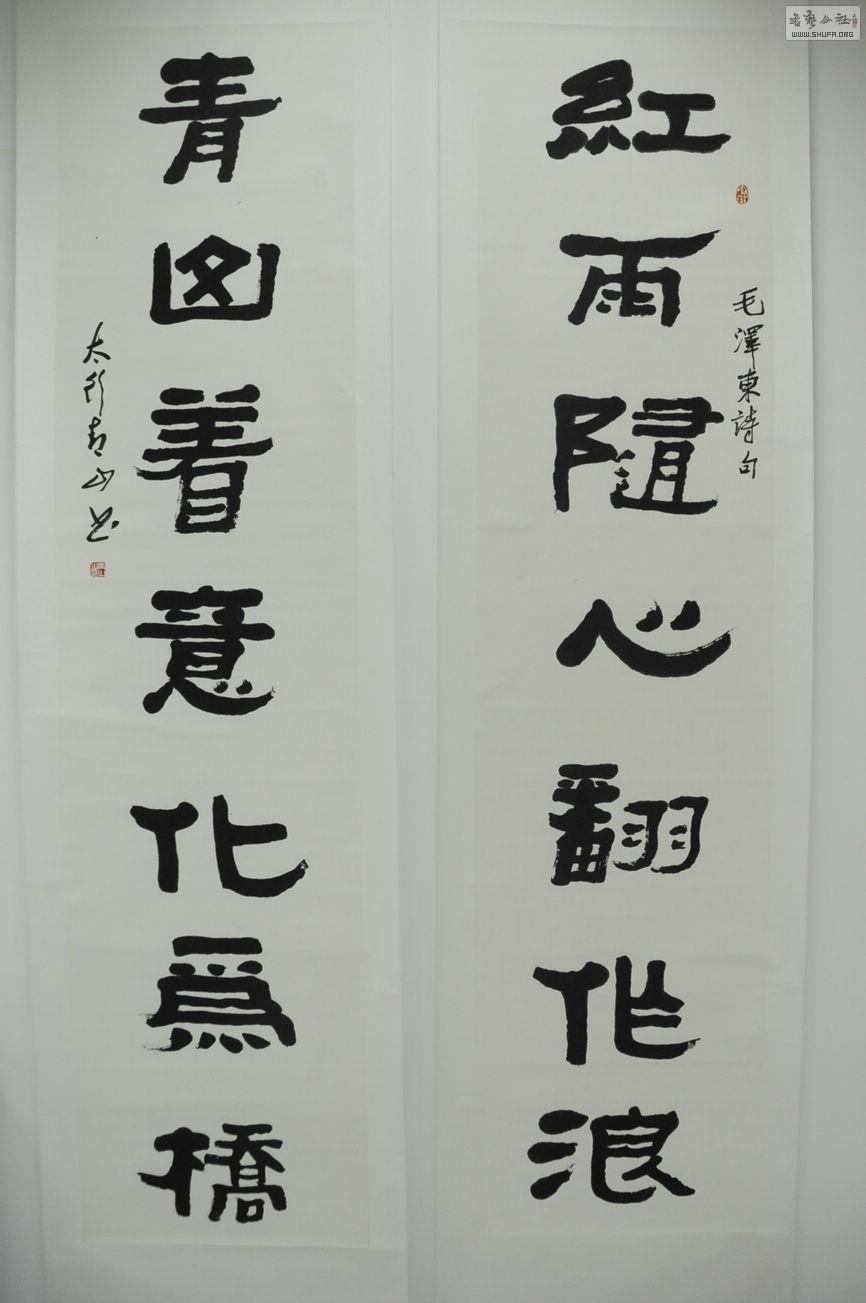 紅雨隨心翻作浪
毛澤東詩句
青山着意化爲橋
太行青山书
書藝公社
WWW.SHUFA.ORG